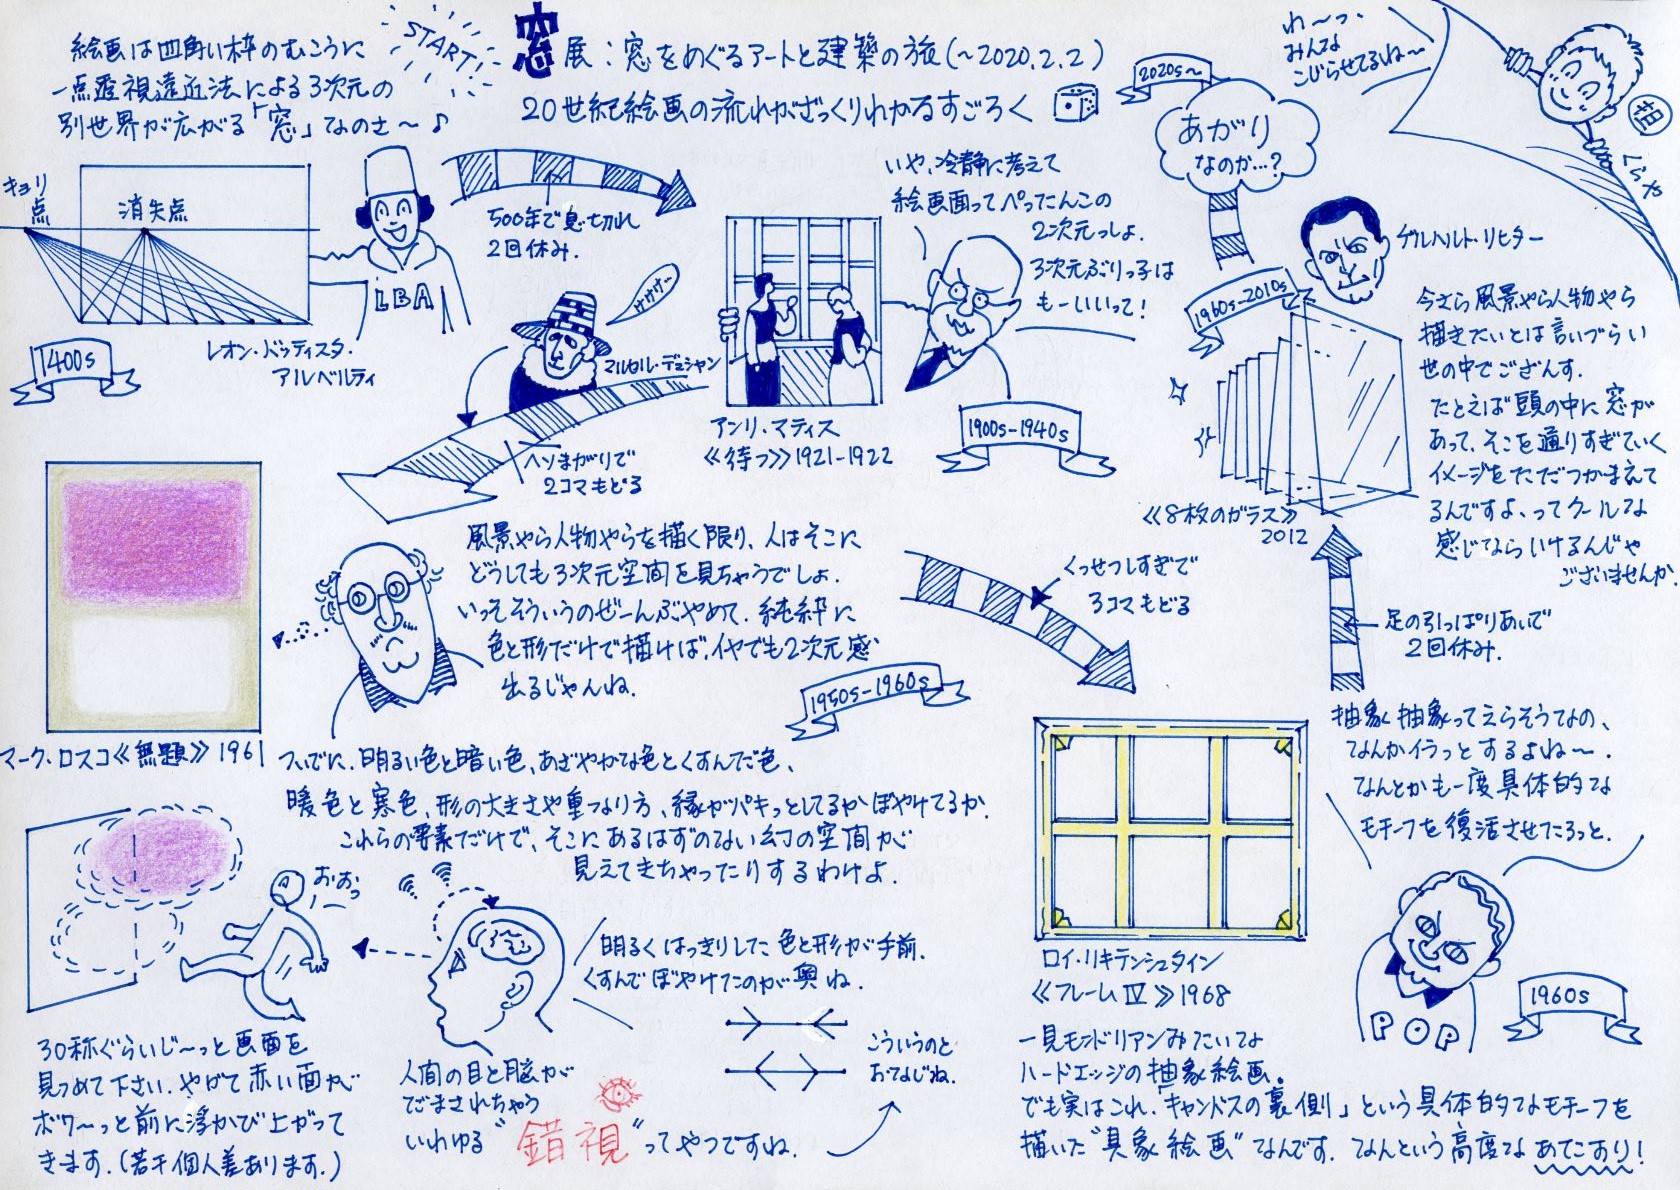 絵画は四角い枠のむこうに
一点透視遠近法による3次元の
別世界が広がる「窓」なのさ〜♪
START!
窓展：窓をめぐるアートと建築の旅(〜2020.2.2)
20世紀絵画の流れがざっくりわかるすごろく
2020s〜
あがり
なのか…?
わ〜っ.
みんな
こじらせてるね〜
担
ぐらや
キョリ
点
消失点
LBA
1400s
レオン・バッティスタ・
アルベルティ
500年で息切れ
2回休み.
ケケケ〜
マルセル・デュシャン
ヘソまがりで
2コマもどる
いや、冷静に考えて
絵画面ってぺったんこの
2次元っしょ.
3次元ぶりっ子は
もーいいって!
アンリ・マティス
《待つ》1921-1922
1900s-1940s
1960s-2010s
ゲルハルト・リヒター
今さら風景やら人物やら
描きたいとは言いづらい
世の中でござんす.
たとえば頭の中に窓が
あって、そこを通りすぎていく
イメージをただつかまえて
るんですよ、ってクールな
感じならいけるんじゃ
ございませんか.
《8枚のガラス》
2012
足の引っぱりあいで
2回休み.
風景やら人物やらを描く限り、人はそこに
どうしても3次元空間を見ちゃうでしょ.
いっそそういうのぜーんぶやめて、純粋に
色と形だけで描けば、イヤでも2次元感
出るじゃんね.
1950s-1960s
くっせつしすぎで
3コマもどる
マーク・ロスコ《無題》1961
ついでに、明るい色と暗い色、あざやかな色とくすんだ色、
暖色と寒色、形の大きさや重なり方、縁がパキっとしてるかぼやけてるか.
これらの要素だけで、そこにあるはずのない幻の空間が
見えてきちゃったりするわけよ.
おおっ
30秒ぐらいじ〜っと画面を
見つめて下さい.やがて赤い面が
ボワ〜っと前に浮かび上がって
きます.(若干個人差あります.)
明るくはっきりした色と形が手前.
くすんでぼやけたのが奥ね.
人間の目と脳が
だまされちゃう
いわゆる"錯視"ってやつですね.
こういうのと
おなじね.
抽象抽象ってえらそうなの、
なんかイラっとするよね〜.
なんとかも一度具体的な
モチーフを復活させたろっと.
POP
1960s
ロイ・リキテンシュタイン
《フレームⅣ》1968
一見モンドリアンみたいな
ハードエッジの抽象絵画。
でも実はこれ、「キャンバスの裏側」という具体的なモチーフを
描いた"具象絵画"なんです.なんという高度なあてこすり!